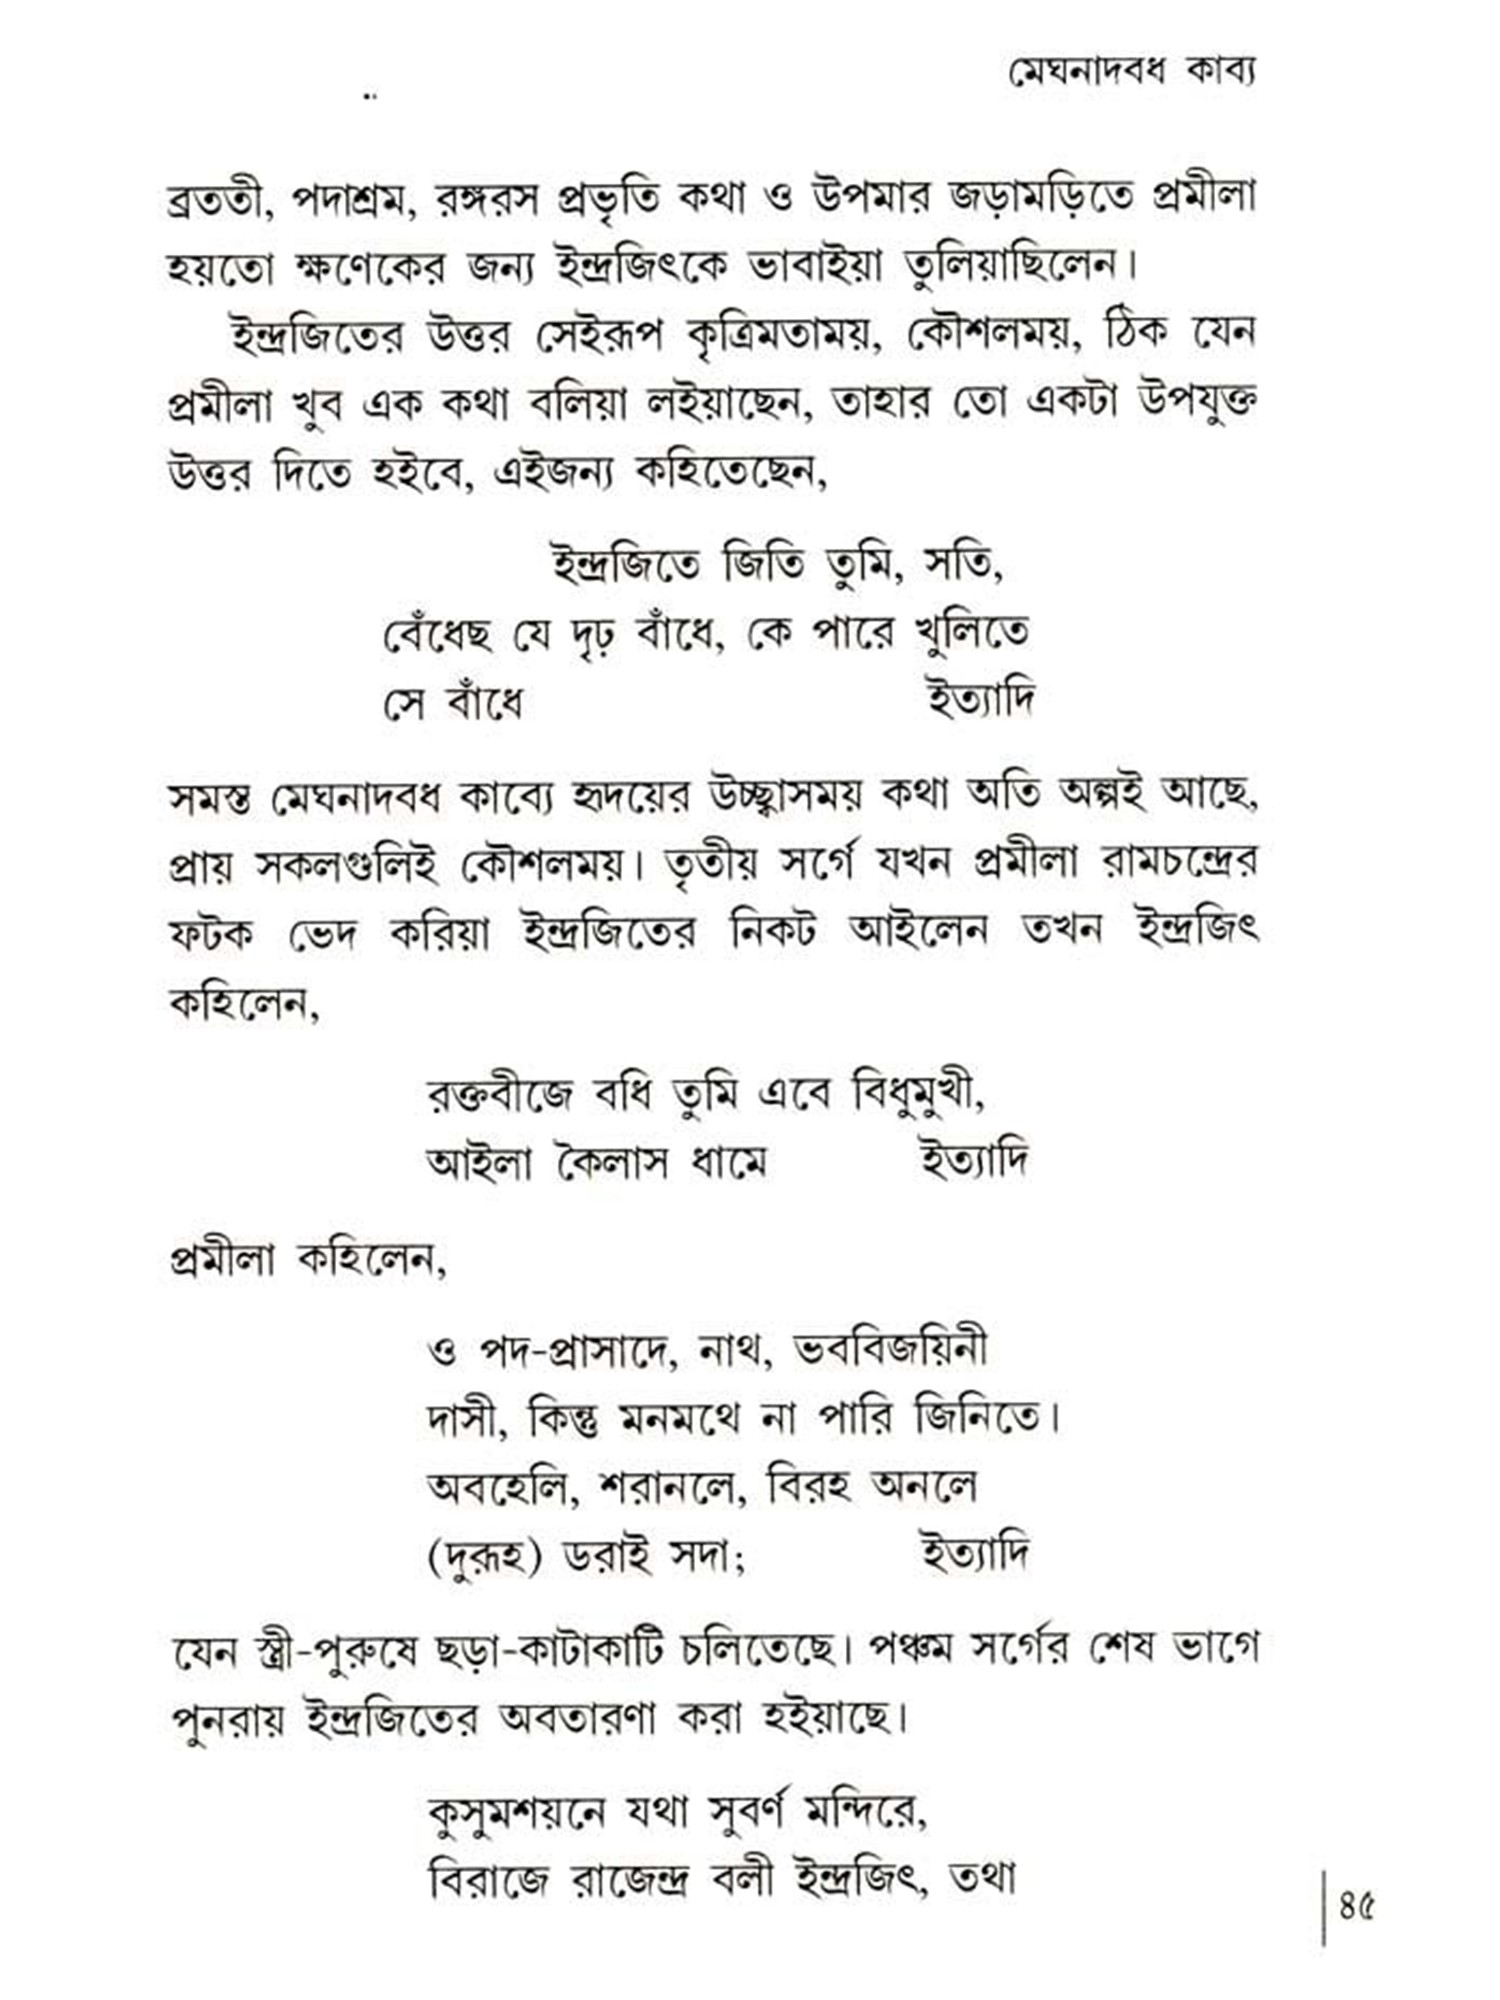 মেঘনাদবধ কাব্য
ব্রততী, পদাশ্রম, রঙ্গরস প্রভৃতি কথা ও উপমার জড়ামড়িতে প্রমীলা
হয়তো ক্ষণেকের জন্য ইন্দ্রজিৎকে ভাবাইয়া তুলিয়াছিলেন।
ইন্দ্রজিতের উত্তর সেইরূপ কৃত্রিমতাময়, কৌশলময়, ঠিক যেন
প্রমীলা খুব এক কথা বলিয়া লইয়াছেন, তাহার তো একটা উপযুক্ত
উত্তর দিতে হইবে, এইজন্য কহিতেছেন,
ইন্দ্রজিতে জিতি তুমি, সতি,
বেঁধেছ যে দৃঢ় বাঁধে, কে পারে খুলিতে
সে বাঁধে ইত্যাদি
সমস্ত মেঘনাদবধ কাব্যে হৃদয়ের উচ্ছ্বাসময় কথা অতি অল্পই আছে,
প্রায় সকলগুলিই কৌশলময়। তৃতীয় সর্গে যখন প্রমীলা রামচন্দ্রের
ফটক ভেদ করিয়া ইন্দ্রজিতের নিকট আইলেন তখন ইন্দ্রজিৎ
কহিলেন,
রক্তবীজে বধি তুমি এবে বিধুমুখী,
আইলা কৈলাস ধামে ইত্যাদি
প্রমীলা কহিলেন,
ও পদ-প্রাসাদে, নাথ, ভববিজয়িনী
দাসী, কিন্তু মনমথে না পারি জিনিতে।
অবহেলি, শরানলে, বিরহ অনলে
(দুরূহ) ডরাই সদা; ইত্যাদি
যেন স্ত্রী-পুরুষে ছড়া-কাটাকাটি চলিতেছে। পঞ্চম সর্গের শেষ ভাগে
পুনরায় ইন্দ্রজিতের অবতারণা করা হইয়াছে।
কুসুমশয়নে যথা সুবর্ণ মন্দিরে,
বিরাজে রাজেন্দ্র বলী ইন্দ্রজিৎ, তথা
৪৫